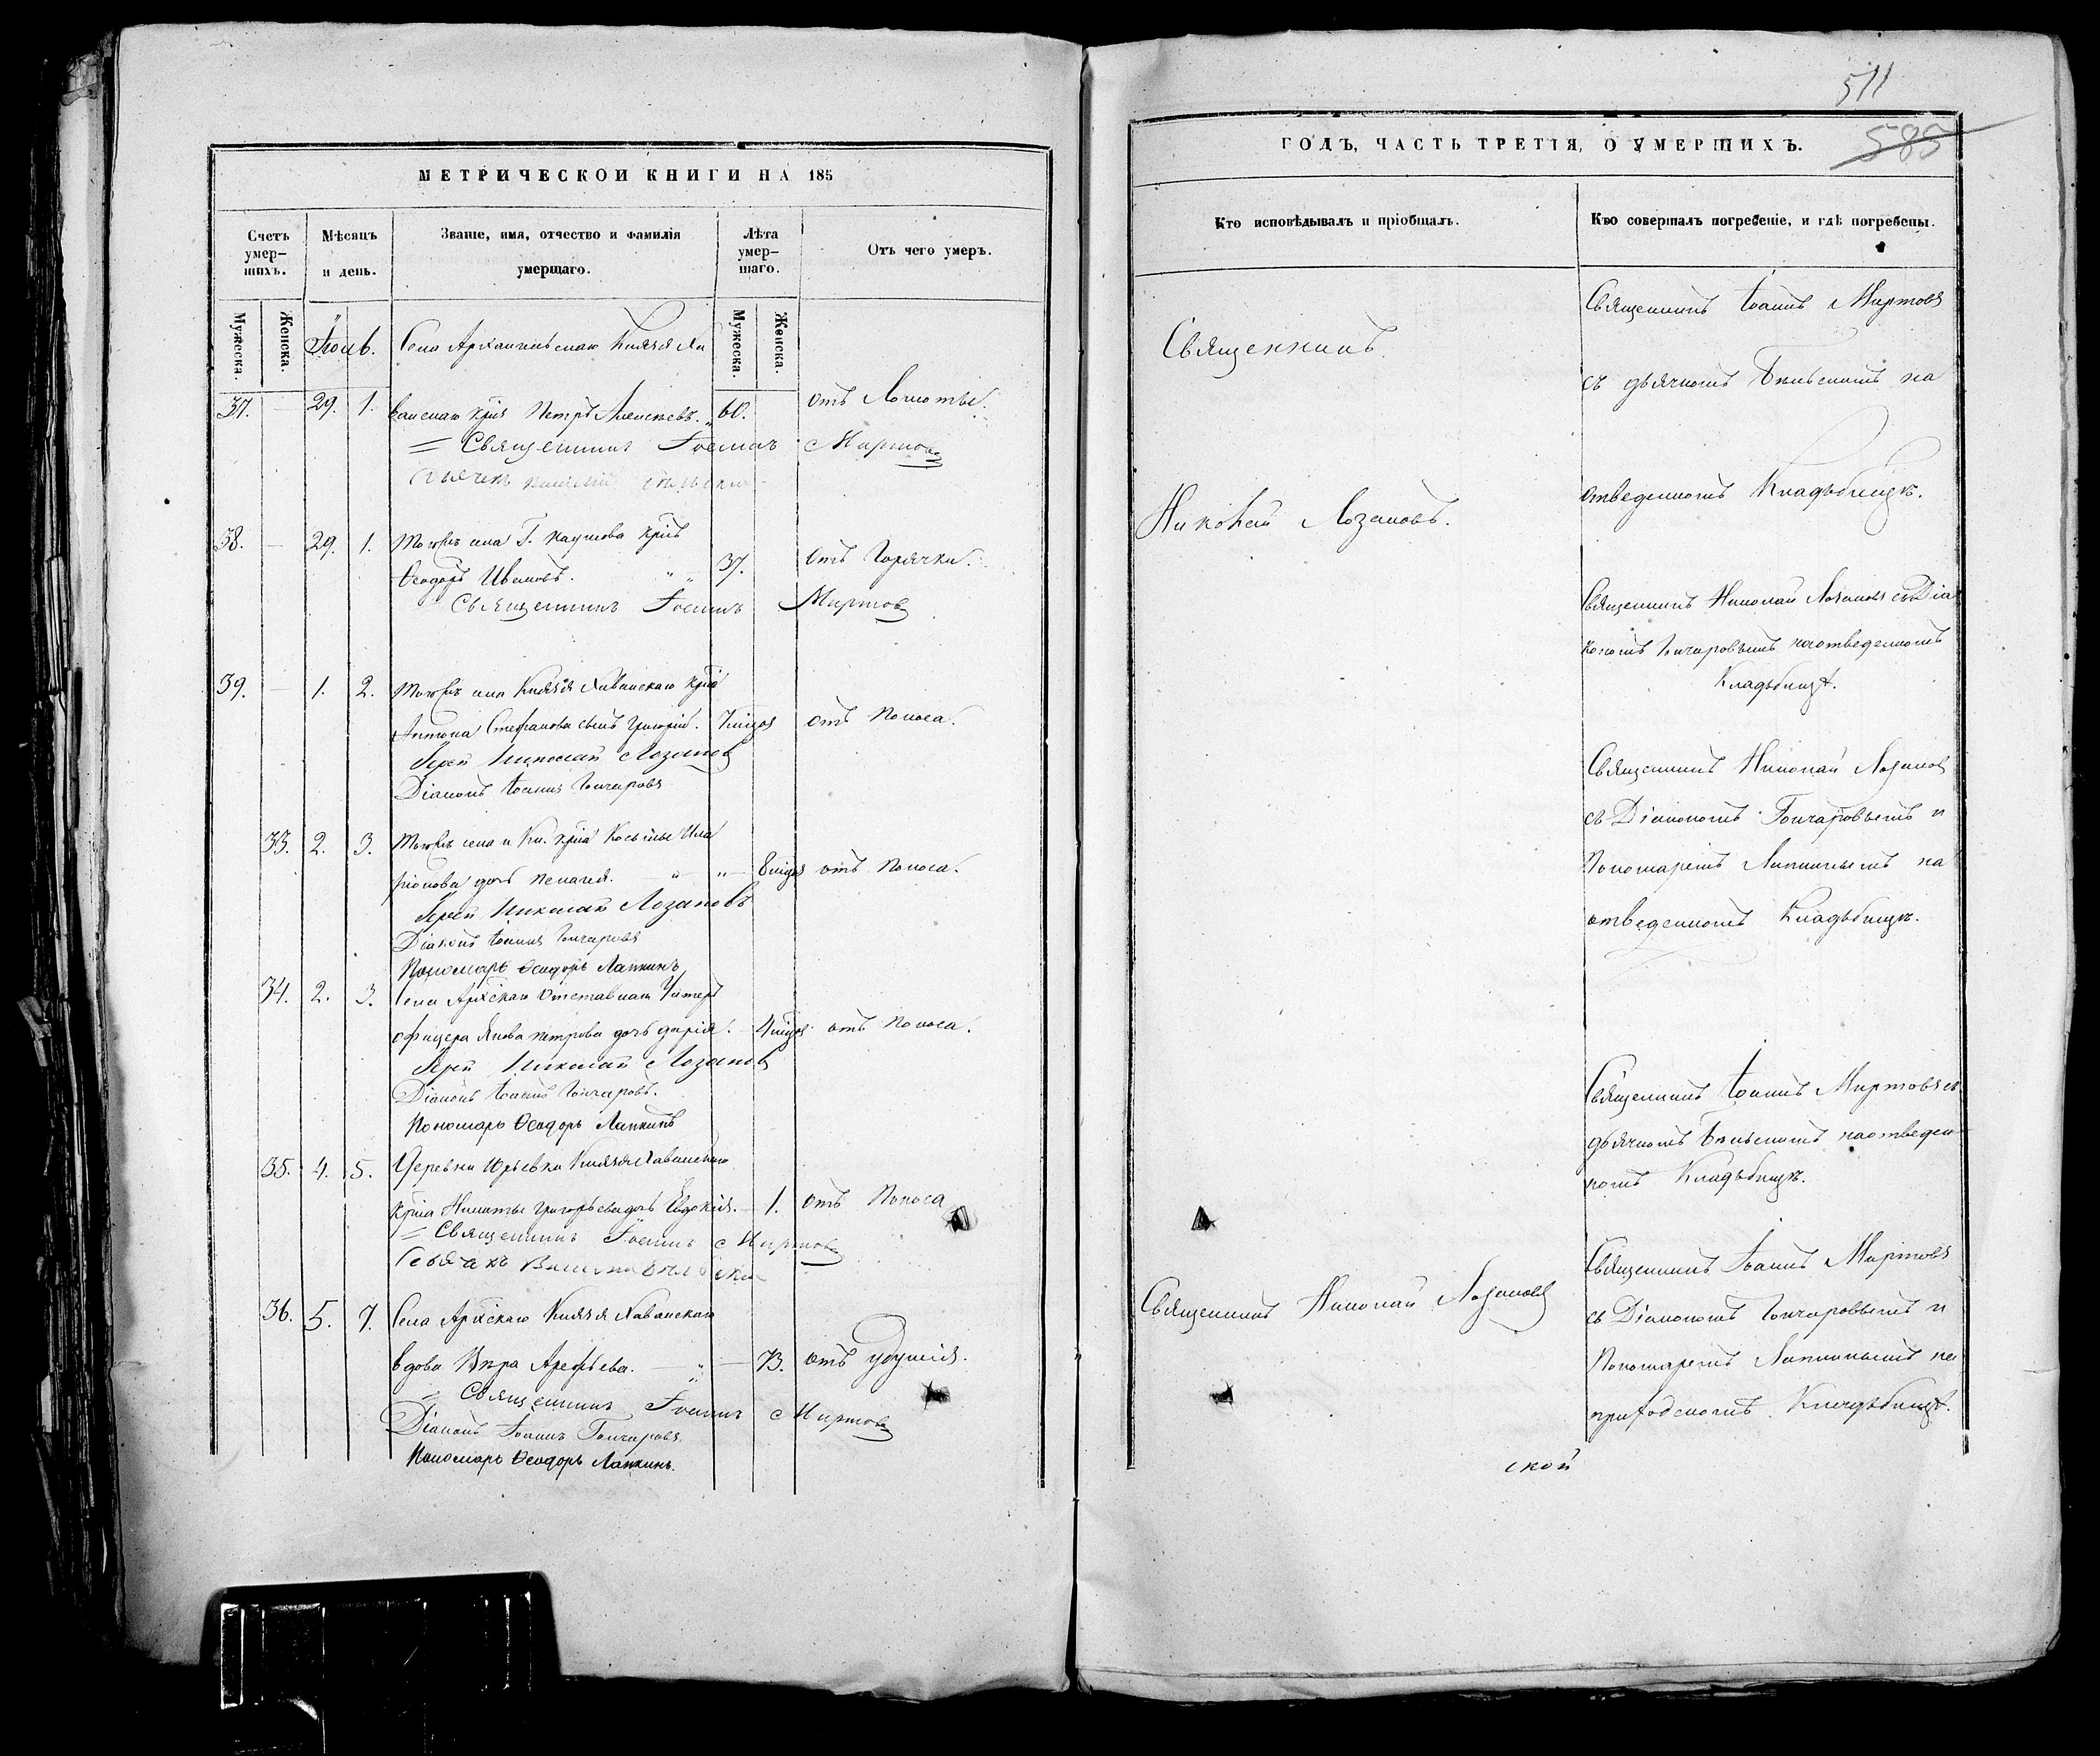 МЕТРИЧЕСКОЙ КНИГИ НА 185
Счетъ умер-шихъ.
Мѣсяцъ и день.
Званіе, имя, отчество и фамилія умершаго.
Лѣта умер-шаго.
Отъ чего умеръ.
Мужеска.
Женска.
Мужеска.
Женска.
Села Архангельскаго Князя Хо
37. 29. 1. ванскаго Петръ Алексѣевъ. 60. отъ
Священникъ Іоаннъ Миртовъ
38. 29. 1. Тогожъ села Г.
Ѳеодоръ Ивановъ. 37. отъ Горячки.
Священникъ Іоаннъ Миртовъ
39. 1. 2. Тогожъ села Князя Хованскаго
Антона Стефанова сынъ Григорій. отъ Поноса.
Іерей Николай Лозановъ
Діаконъ Іоаннъ Гончаровъ
33. 2. 3. Тогожъ села и Кн. Косьмы Ила
ріонова дочь Пелагея. отъ Поноса.
Іерей Николай Лозановъ
Діаконъ Іоаннъ Гончаровъ
Пономарь Ѳеодоръ Лапкинъ
34. 2. 3. Села отставнаго Унтеръ
офицера Якова Петрова дочь Дарія. отъ Поноса.
Іерей Николай Лозановъ
Діаконъ Іоаннъ Гончаровъ.
Пономарь Ѳеодоръ Лапкинъ
35. 4. 5. Деревни Юрьевки Князя Хованскаго
Никиты Григорьева дочь Евдокія. 1. отъ Поноса
Священникъ Іоаннъ Миртовъ
36. 5. 7. Села Князя Хованскаго
вдова Арефьева. 73. отъ удушія.
Священникъ Іоаннъ Миртовъ
Діаконъ Іоаннъ Гончаровъ.
Пономарь Ѳеодоръ Лапкинъ.
511
585
ГОДЪ, ЧАСТЬ ТРЕТІЯ, О УМЕРШИХЪ.
Кто исповѣдывалъ и пріобщалъ.
Кто совершалъ погребеніе, и гдѣ погребены.
Священникъ
Николай Лозановъ.
Священникъ Іоаннъ Миртовъ
съ дьячкомъ Бѣльскимъ на
отведенномъ Кладбищѣ.
Священникъ Николай Лозановъ съ Діа
кономъ Гончаровымъ на отведенномъ
Кладбищѣ.
Священникъ Николай Лозановъ
съ Діакономъ Гончаровымъ и
Пономаремъ Лапкинымъ на
отведенномъ Кладбищѣ.
Священникъ Іоаннъ Миртовъ съ
дьячкомъ Бѣльскимъ на отведен
номъ Кладбищѣ.
Священникъ Николай Лозановъ
Священникъ Іоаннъ Миртовъ
съ Діакономъ Гончаровымъ и
Пономаремъ Лапкинымъ на
приходскомъ Кладбищѣ.
ской